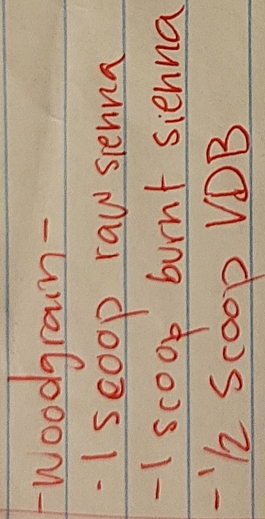 -Woodgrain-
-1 scoop raw sienna
-1 scoop burnt sienna
-1/2 scoop VDB